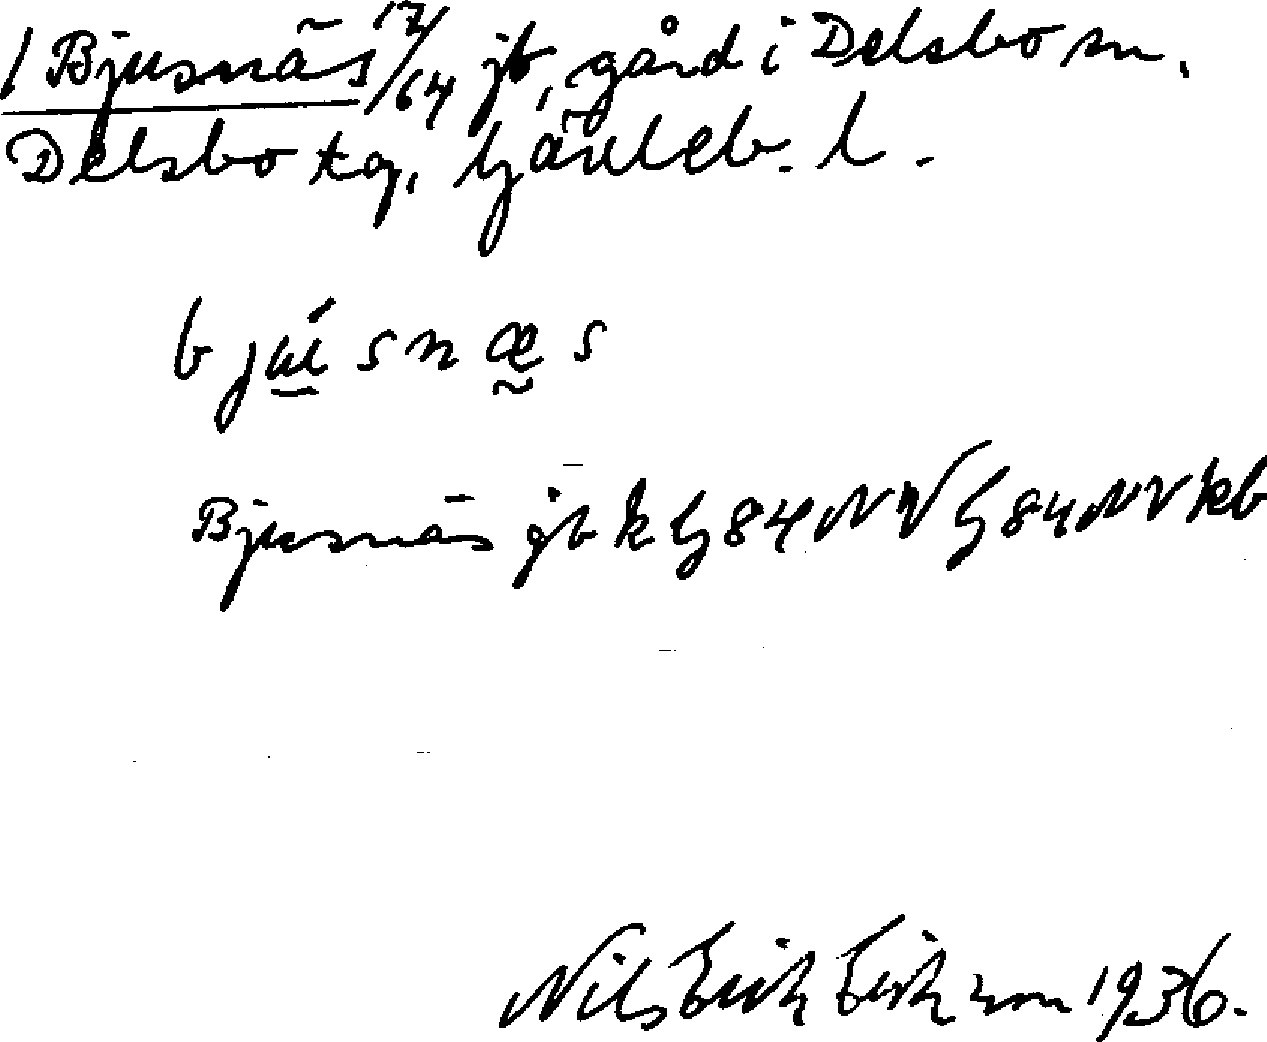 1 Bjusnäs 17/64 jb, gård i Delsbo sn.
Delsbo tg, Gävleb. l.
bjúsnæs
Bjusnäs jb k G84NV G84NV kb
Nils Erik Erikson 1936.